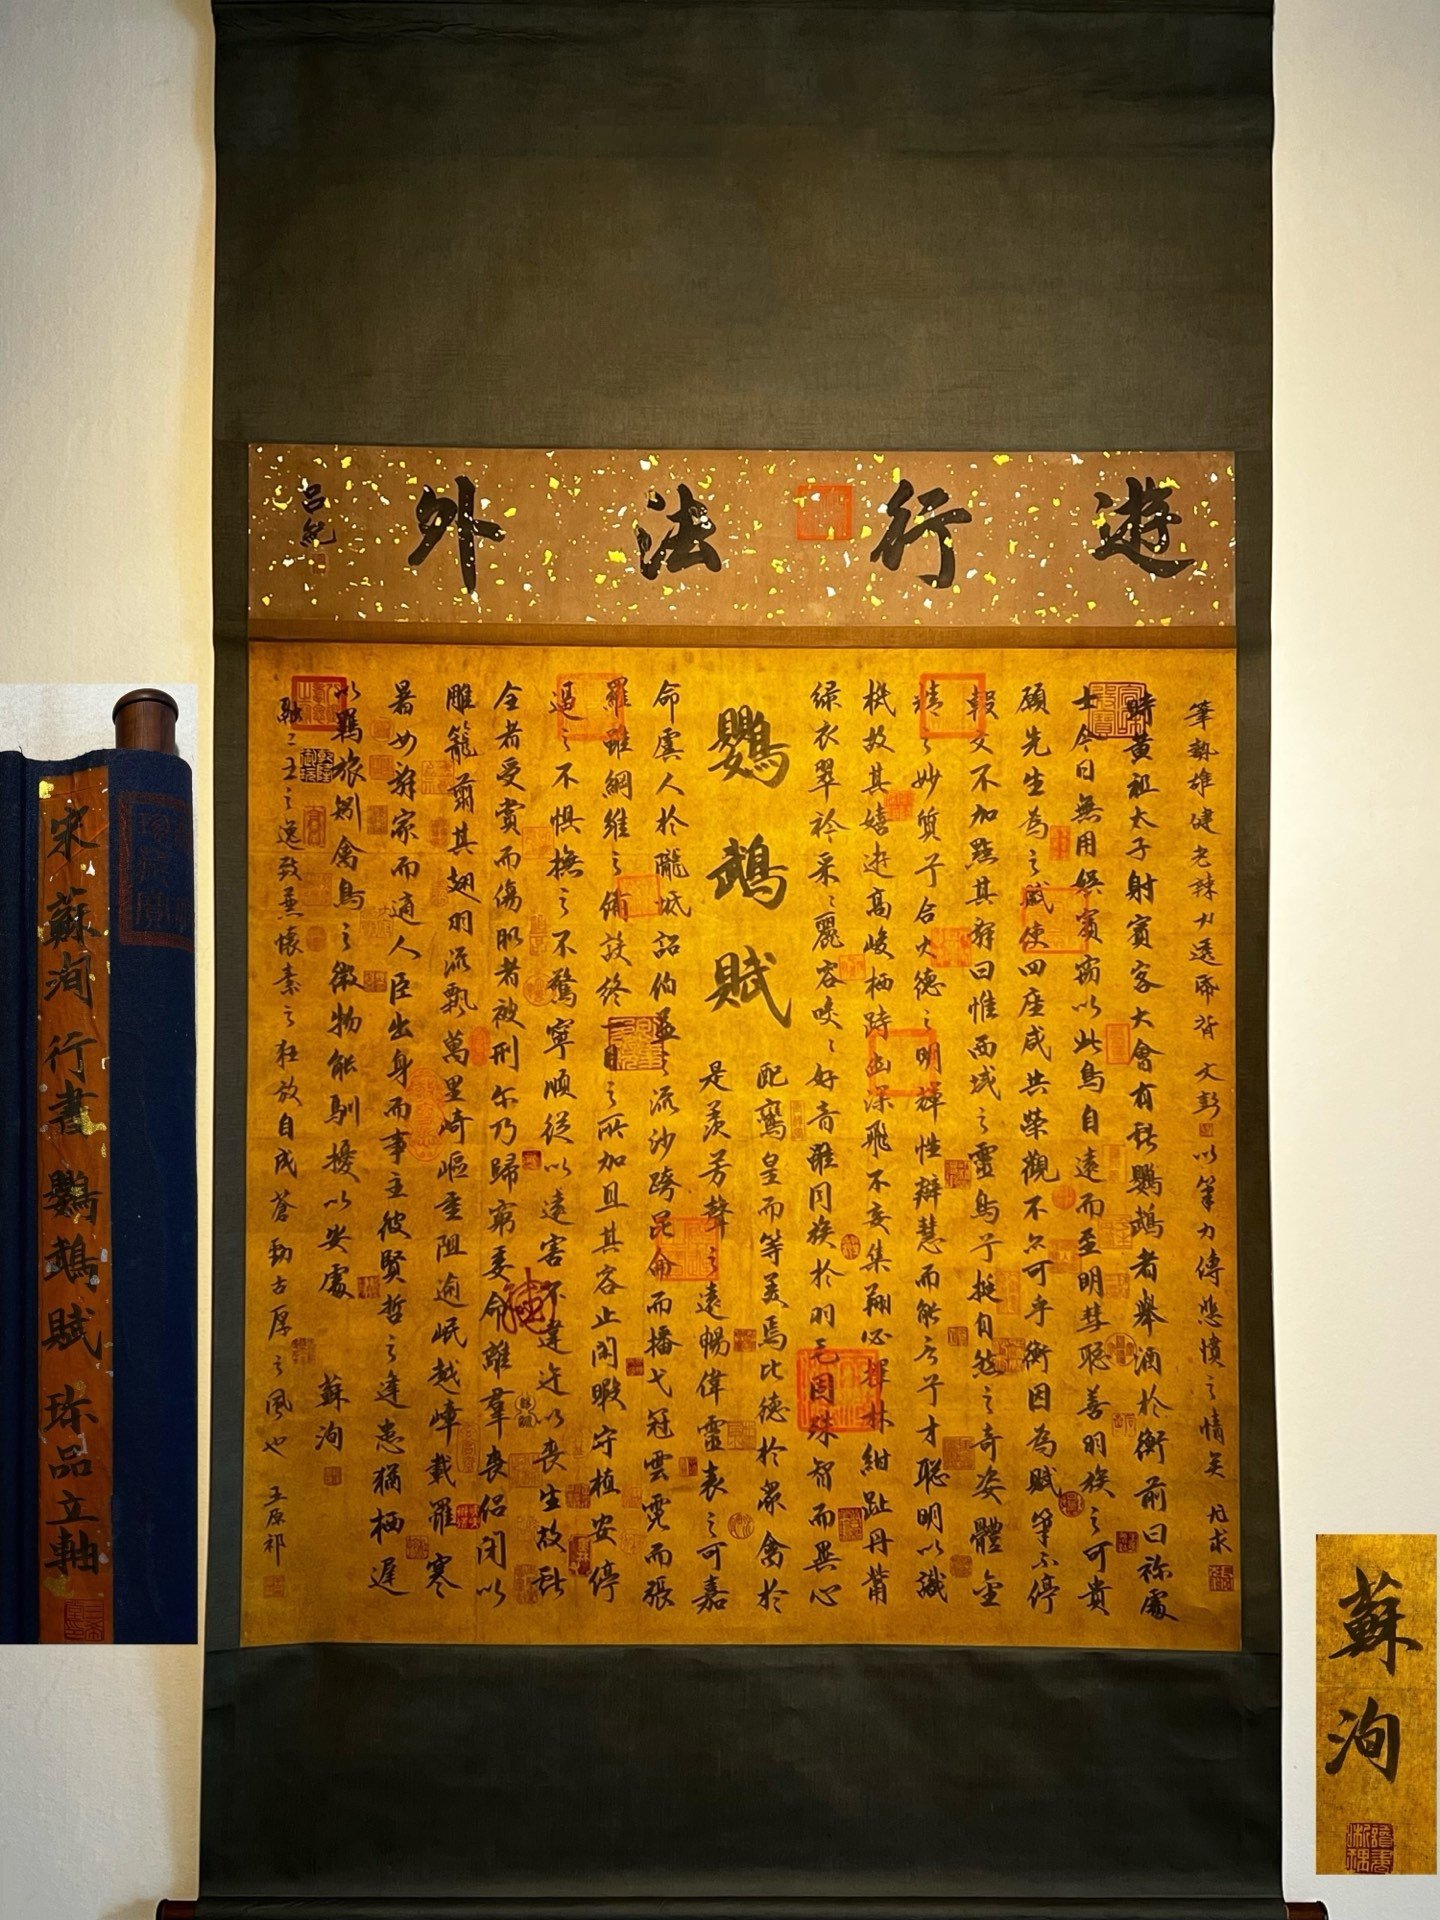 遊行法外
呂紀
筆勢雄健老辣力透紙背 文彭
以筆力傳悲憤之情矣 九求
時黃祖太子射賓客大會有獻鸚鵡者舉酒於衡前曰祢處
士今日無用娛賓竊以此鳥自遠而至明彗聡善羽族之可貴
願先生為之賦使四座咸共榮觀不亦可乎衡因為賦筆不停
輟文不加點其辤曰惟西域之靈鳥兮挺自然之奇姿體金
精之妙質兮合火德之明輝性辯慧而能言兮才聡明以識
機故其嬉遊高峻栖跱幽深飛不妄集翔必擇林紺趾丹觜
綠衣翠衿采采麗容咬咬好音雖同族於羽毛固殊智而異心
配鸞皇而等美焉比德於眾禽於
鸚鵡賦
是羨芳聲之遠暢偉靈表之可嘉
命虞人於隴坻詔伯益於流沙跨昆侖而播弋冠雲霓而張
羅雖綱維之俻設終一目之所加且其容止閑暇守植安停
逼之不惧撫之不驚寧順從以遠害不違迕以喪生故獻
全者受賞而傷肌者被刑尒乃歸窮委命離羣喪侶閉以
雕籠翦其翅羽流飄萬里崎嶇重阻逾岷越嶂載罹寒
暑女辤家而適人臣出身而事主彼賢哲之逢患猶栖遲
以羈旅矧禽鳥之微物能馴擾以安處
蘇洵
融二王之逸致兼懷素之狂放自成蒼勁古厚之風也 王原祁
宋 蘇洵行書 鸚鵡賦 珎品立軸
蘇洵